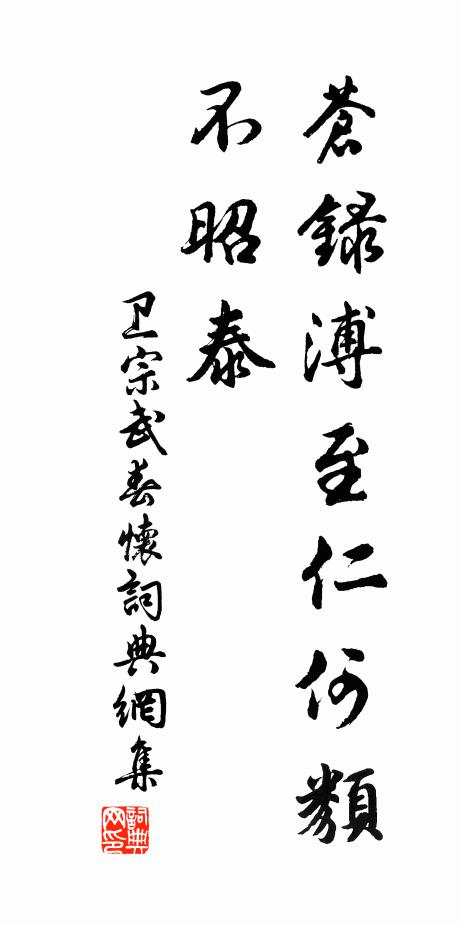 蒼録溥至仁何類
不昭泰
卫宗武春懷詞典網集
詞典网印